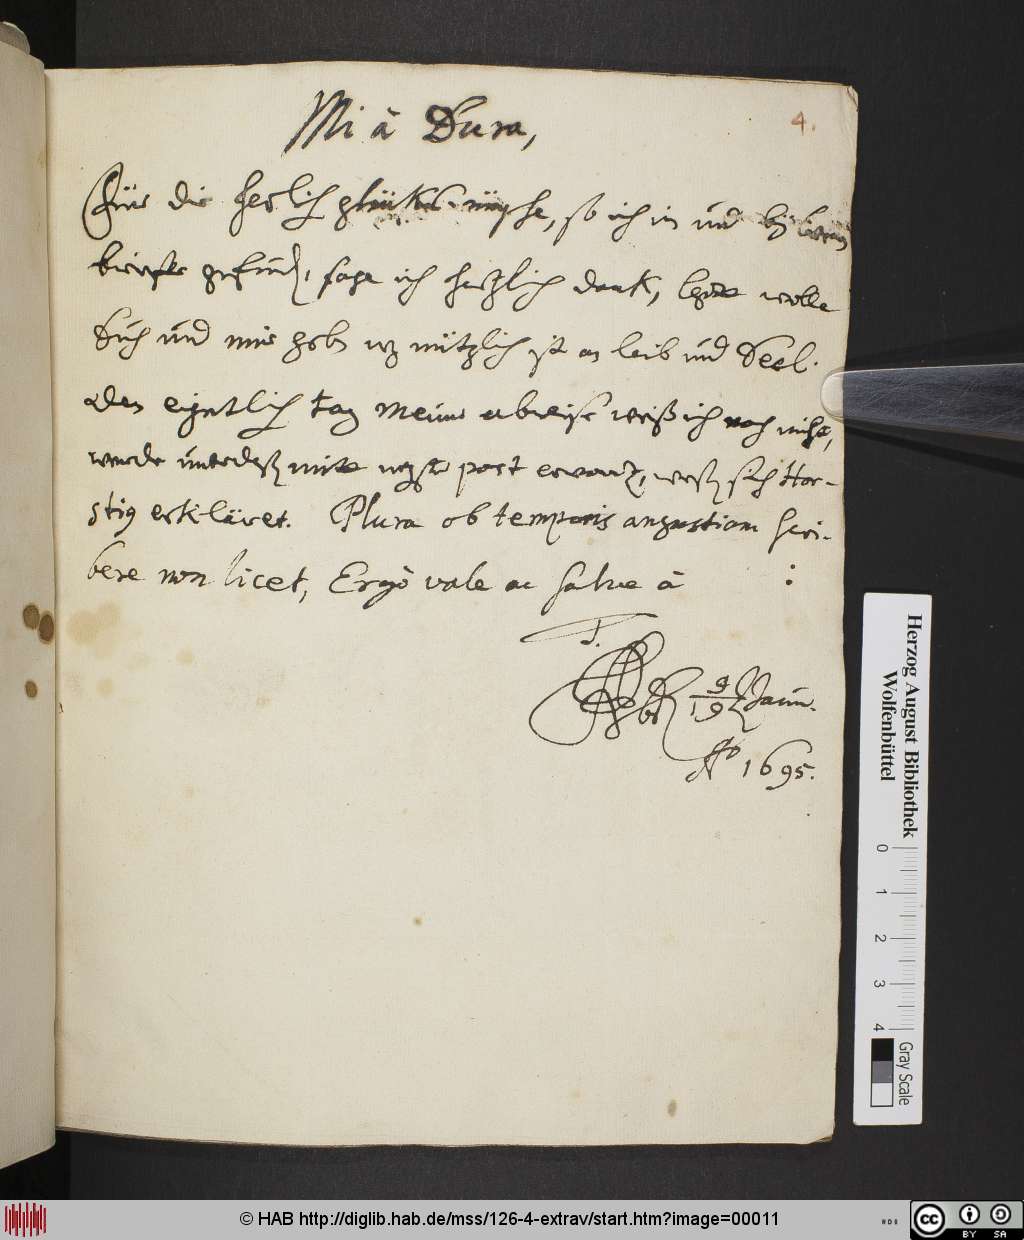 Mi â Dura,
4.
Für die herlich glückwünsche, so ich in und by
brieffe gefund, sage ich hertzlich dank, wolle
Dich und mir geb wz nützlich ist an leib und Seel.
den eigentlich tag meiner abreise weiß ich noch nicht,
werde unterdeß mitt post erwart, weß sich Hor-
stig erkläret. Plura ob temporis angustiam scri-
bere non licet, Ergò vale ac salve â :
T.
9/19 Januar.
Aº 1695.
Herzog August Bibliothek
Wolfenbüttel
0 1 2 3 4
Gray Scale
© HAB http://diglib.hab.de/mss/126-4-extrav/start.htm?image=00011
cc BY SA